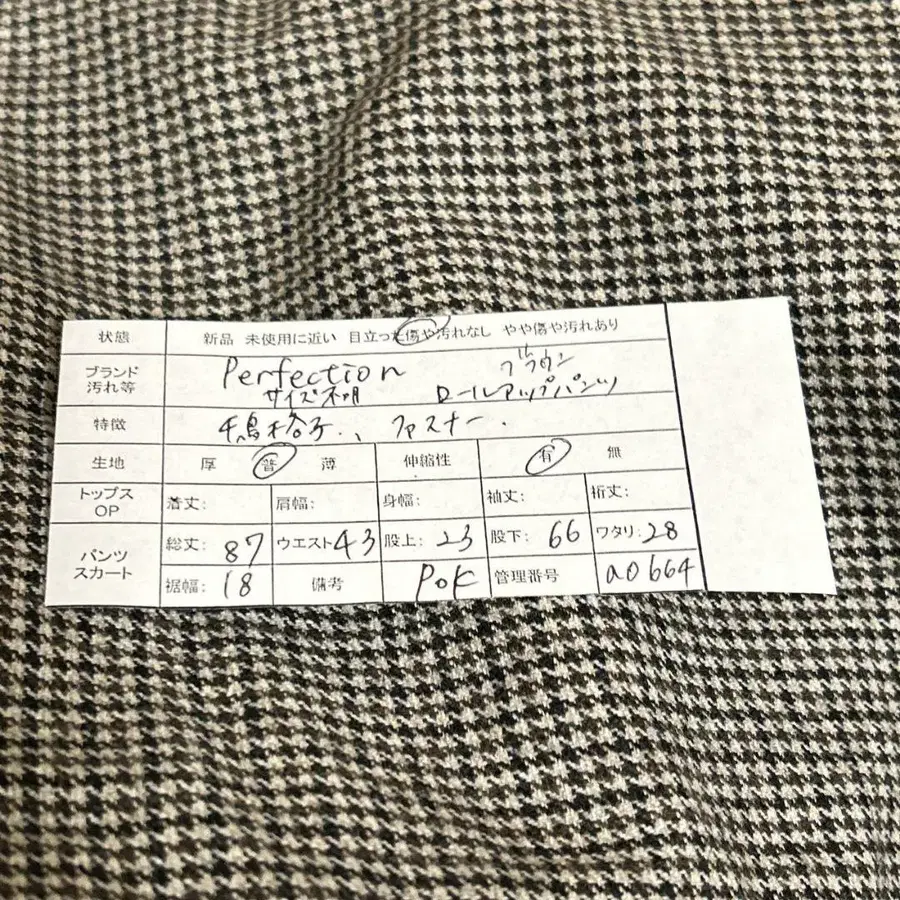 状態 新品 未使用に近い 目立った傷や汚れなし やや傷や汚れあり
ブランド 汚れ等 Perfection ブラウン
サイズ不明 ロールアップパンツ
特徴 千鳥格子、ファスナー.
生地 厚 普 薄 伸縮性 有 無
トップス OP 着丈: 肩幅: 身幅: 袖丈: 裄丈:
パンツ スカート 総丈: 87 ウエスト 43 股上: 23 股下: 66 ワタリ: 28
裾幅: 18 備考 Pok 管理番号 a0664